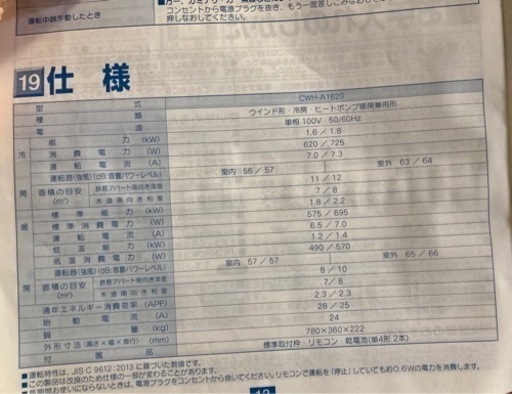 運転中誤作動したとき
コンセントから電源プラグを抜き、もう一度差しこみなお
押しなおしてください。
19 仕様
型式 CWH-A1820
種類 ウインド形・冷房・ヒートポンプ暖房兼用形
電源 単相 100V 50/60Hz
冷房
能力(kW) 1.6 / 1.8
消費電力(W) 620 / 725
運転電流(A) 7.0 / 7.3
運転音(強風)(dB:音響パワーレベル) 室内 56 / 57 室外 63 / 64
面積の目安(㎡) 鉄筋アパート南向き洋室 11 / 12
木造南向き和室 7 / 8
暖房
標準能力(kW) 1.8 / 2.2
標準消費電力(W) 575 / 695
運転電流(A) 6.5 / 7.0
低温能力(kW) 1.2 / 1.4
低温消費電力(W) 490 / 570
運転音(強風)(dB:音響パワーレベル) 室内 57 / 57 室外 65 / 66
面積の目安(㎡) 鉄筋アパート南向き洋室 8 / 10
木造南向き和室 7 / 8
通年エネルギー消費効率(APF) 2.3 / 2.3
始動電流(A) 28 / 25
質量(kg) 24
外形寸法(高さ×幅×奥行)(mm) 780×360×222
付属品 標準取付枠・リモコン・乾電池(単4形 2本)
■運転特性は、JIS C 9612:2013 に基づいた数値です。
■この製品は改良のため仕様の一部が変わることがあります。
■長期間お使いにならないときは、電源プラグをコンセントから抜いてください。リモコンで運転を「停止」していても約0.6Wの電力を消費します。